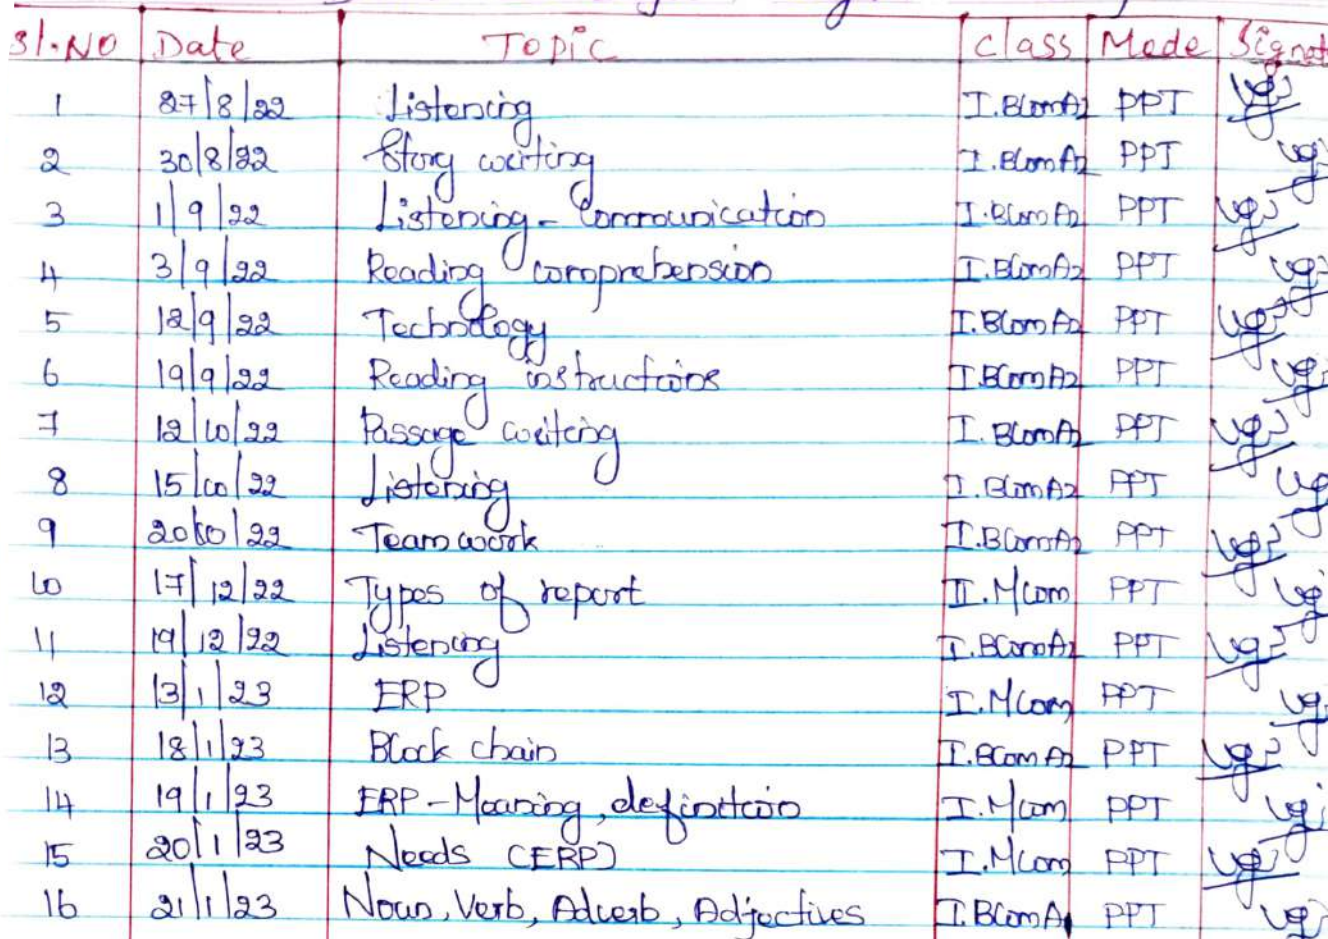 Sl.NO Date TOPIC Class Mode Signat
1 27/8/22 Listening I.BComA2 PPT
2 30/8/22 Story writing I.BComA2 PPT
3 1/9/22 Listening - Communication I.BComA2 PPT
4 3/9/22 Reading comprehension I.BComA2 PPT
5 12/9/22 Technology I.BComA2 PPT
6 19/9/22 Reading instructions I.BComA2 PPT
7 12/10/22 Passage writing I.BComA2 PPT
8 15/10/22 Listening I.BComA2 PPT
9 20/10/22 Team work I.BComA2 PPT
10 17/12/22 Types of report II.MCom PPT
11 19/12/22 Listening I.BComA2 PPT
12 13/1/23 ERP I.MCom PPT
13 18/1/23 Block chain I.BComA2 PPT
14 19/1/23 ERP - Meaning, definition I.MCom PPT
15 20/1/23 Needs (ERP) I.MCom PPT
16 21/1/23 Noun, Verb, Adverb, Adjectives I.BComA1 PPT